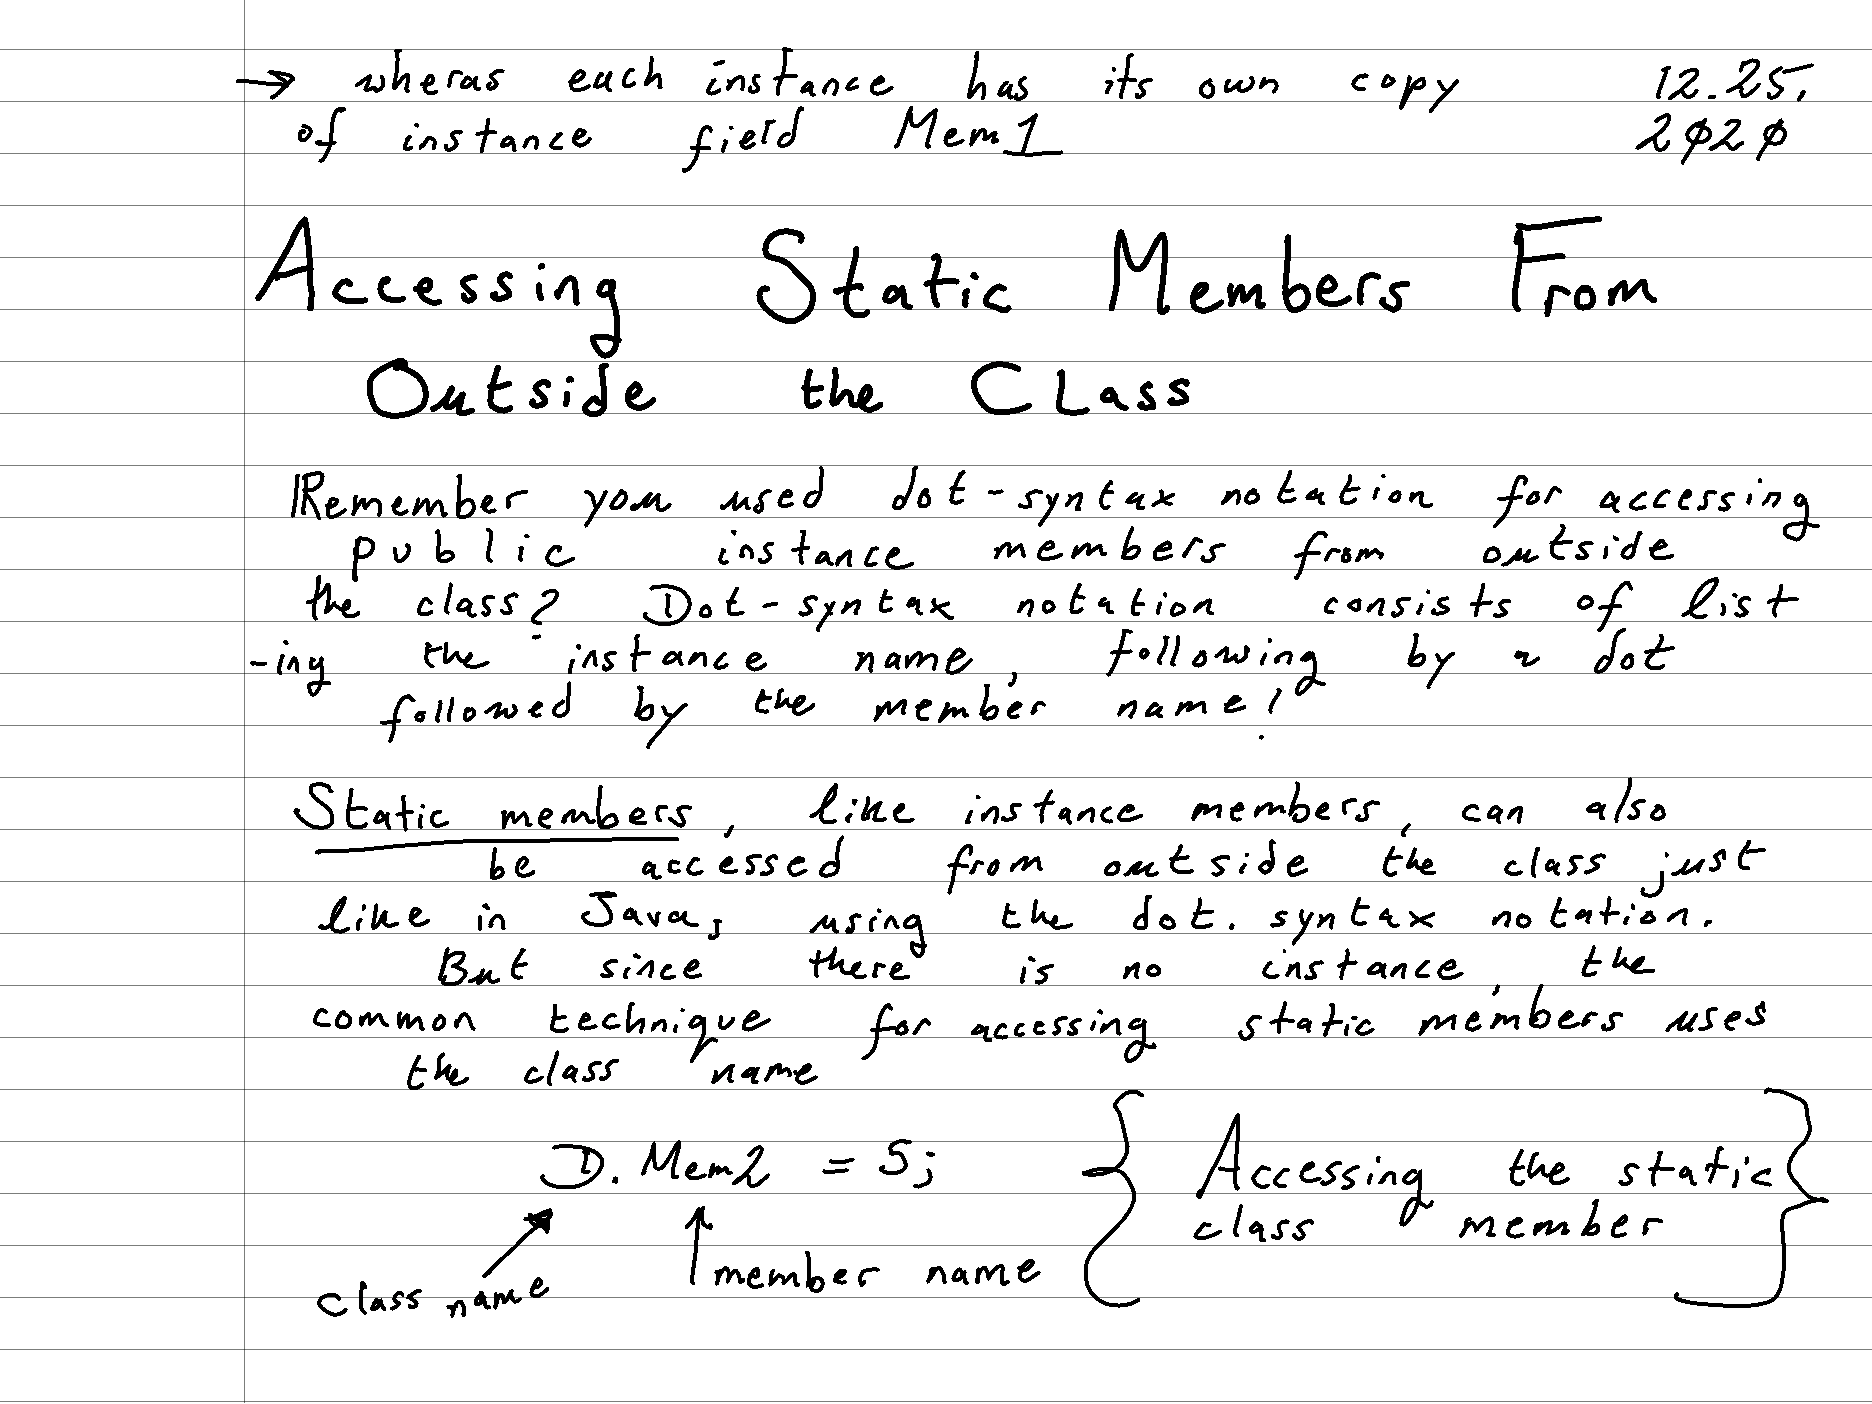 → wheras each instance has its own copy 12.25.
of instance field Mem1 2020
Accessing Static Members From
Outside the CLass
Remember you used dot-syntax notation for accessing
public instance members from outside
the class? Dot-syntax notation consists of list
-ing the instance name, following by a dot
followed by the member name!
Static members, like instance members, can also
be accessed from outside the class just
like in Java, using the dot. syntax notation.
But since there is no instance, the
common technique for accessing static members uses
the class name
D. Mem2 = 5; { Accessing the static }
class member
member name
class name